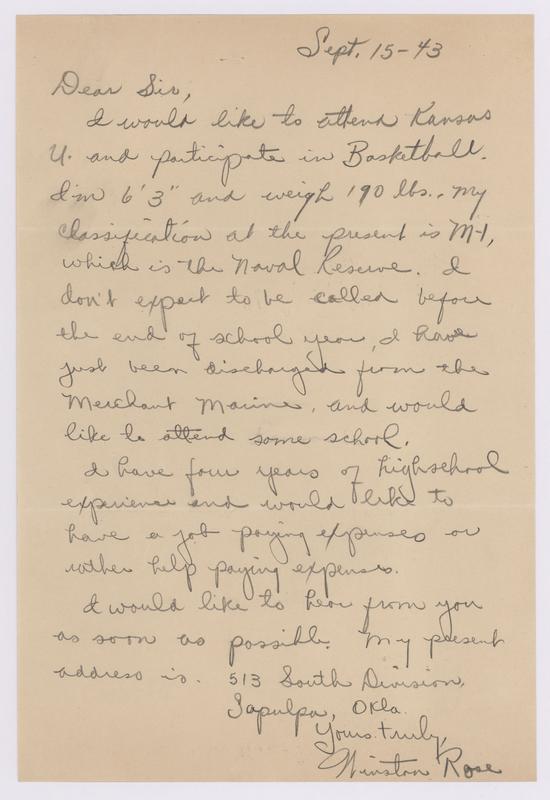 Sept. 15-43
Dear Sir,
I would like to attend Kansas
U. and participate in Basketball.
I'm 6'3" and weigh 190 lbs.. My
classification at the present is M-1,
which is the Naval Reserve. I
don't expect to be called before
the end of school year, I have
just been discharged from the
Merchant Marine, and would
like to attend some school.
I have four years of highschool
experience and would like to
have a job paying expenses or
rather help paying expenses.
I would like to hear from you
as soon as possible. My present
address is. 513 South Division,
Sapulpa, Okla.
Yours truly,
Winston Rose